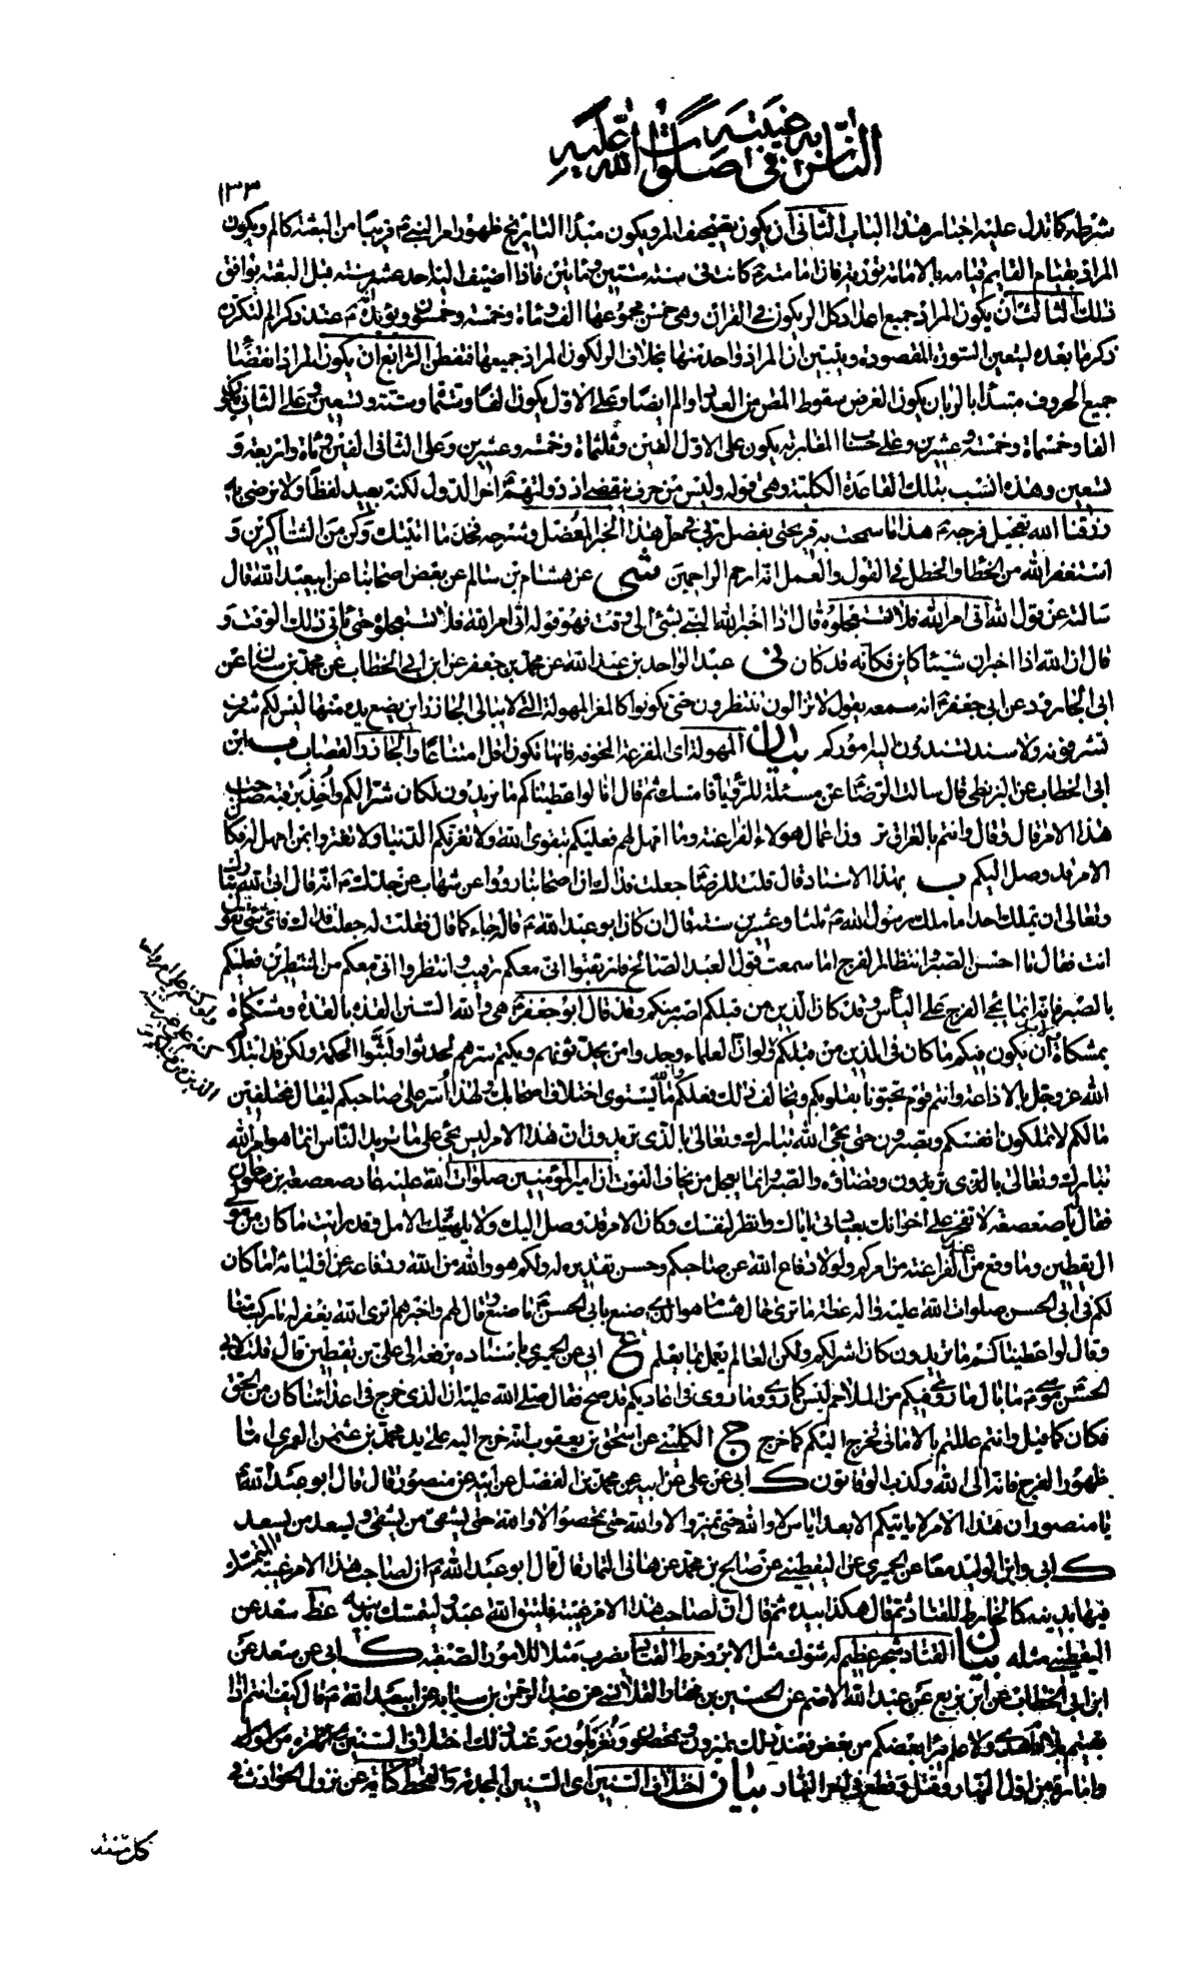 الناس به في غيبته صلوات الله عليه
١٣٣
شرطه كما تدل عليه اخبار هذا الباب الثاني ان يكون تصحيف المر ويكون مبدأ التاريخ ظهور امر النبي ص قريبا من البعثة كالم ويكون
المراد بقيام القايم قيامه بالامامة تورية فان امامته ع كانت في سنة ستين ومايتين فاذا اضيف اليه احد عشر سنة قبل البعثة يوافق
ذلك الثالث ان يكون المراد جميع اعداد كل الر يكون في القران وهي خمس مجموعها الف ومأة وخمسة وخمسون ويؤيده انه ع عند ذكر الم لتكرره
ذكر ما بعده لتعين السورة المقصودة ويتبين ان المراد واحد منها بخلاف الر لكون المراد جميعها فتفطن الرابع ان يكون المراد انقضاء
جميع الحروف مبتدأ بالر بان يكون الغرض سقوط المص من العدد او الم ايضا وعلى الاول يكون الفا وستمأة وستة وتسعين وعلى الثاني يكون
الفا وخمسمأة وخمسة وعشرين وعلى حساب المغاربة يكون على الاول الفين وثلثمأة وخمسة وعشرين وعلى الثاني الفين ومأة واربعة و
تسعين وهذه انسب بتلك القاعدة الكلية وهي قوله وليس من حرف ينقضي اذ دولتهم ع اخر الدول لكنه بعيد لفظا ولا نرضى به
رزقنا الله تعجيل فرجه ع هذا ما سمحت به قريحتي بفضل ربي في حل هذا الخبر المعضل وشرحه فخذ ما اتيتك وكن من الشاكرين و
استغفر الله من الخطا والخطل في القول والعمل انه ارحم الراحمين شى عن هشام بن سالم عن بعض اصحابنا عن ابيعبد الله قال
سالته عن قول الله اتى امر الله فلا تستعجلوه قال اذا اخبر الله النبي بشئ الى وقت فهو قوله اتى امر الله فلا تستعجلوه حتى يأتي ذلك الوقت و
قال ان الله اذا اخبر ان شيئا كاين فكانه قد كان نى عبد الواحد بن عبد الله عن محمد بن جعفر عن ابن ابي الخطاب عن محمد بن سنان عن
ابي الجارود عن ابي جعفر ع انه سمعه يقول لا تزالون تنتظرون حتى تكونوا كالمعز المهولة التي لا يبالي الجازر اين يضع يده منها ليس لكم شرف
تشرفونه ولا سند تسندون اليه اموركم بيان المهولة اي المفزعة المخوفة فانها تكون اقل امتناعا والجازر القصاب ب ابن
ابي الخطاب عن البزنطي قال سالت الرضا عن مسئلة للرؤيا فامسك ثم قال انا لو اعطيناكم ما تريدون لكان شرا لكم واخذ برقبة صاحب
هذا الامر قال وقال وانتم بالعراق ترون اعمال هؤلاء الفراعنة وما امهل لهم فعليكم بتقوى الله ولا تغرنكم الدنيا ولا تغتروا بمن امهل له فكان
الامر قد وصل اليكم ب بهذا الاسناد قال قلت للرضا جعلت فداك ان اصحابنا رووا عن شهاب عن جدك ع انه قال ابى الله تبارك
وتعالى ان يملك احدا ما ملك رسول الله ص ثلثا وعشرين سنة قال ان كان ابو عبد الله ع قاله جاء كما قال فقلت له جعلت فداك فاي شئ تقول
انت فقال ما احسن الصبر وانتظار الفرج اما سمعت قول العبد الصالح فارتقبوا اني معكم رقيب وانتظروا اني معكم من المنتظرين فعليكم
بالصبر فانه انما يجئ الفرج على الياس وقد كان الذين من قبلكم اصبر منكم وقد قال ابو جعفر ع هي والله السنن القذة بالقذة ومشكاة
بمشكاة ولابد ان يكون فيكم ما كان في الذين من قبلكم ولو ان العلماء وجدوا من يحدثونهم ويكتم سرهم لحدثوا ولبثوا الحكمة ولكن قد ابتلاكم
الله عز وجل بالاذاعة وانتم قوم تحبونا بقلوبكم ويخالف ذلك فعلكم والله ما يستوي اختلاف اصحابك ولهذا اسر على صاحبكم ليقال مختلفين
مالكم لا تملكون انفسكم وتصبرون حتى يجئ الله تبارك وتعالى بالذي تريدون ان هذا الامر ليس يجئ على ما يريد الناس انما هو امر الله
تبارك وتعالى بالذي تريدون وقضاؤه والصبر انما يعجل من يخاف الفوت ان امير المؤمنين صلوات الله عليه عاد صعصعة بن صوحان
فقال يا صعصعة لا تفخر على اخوانك بعيادتي اياك وانظر لنفسك وكان الامر قد وصل اليك ولا يلهينك الامل وقد رايت ما كان من مولى
ال يقطين وما وقع من عند الفراعنة من امركم ولولا دفاع الله عن صاحبكم وحسن تقديره له ولكم هو والله من الله ودفاعه عن اوليائه اما كان
لكم في ابي الحسن صلوات الله عليه واله عظة ما ترى حال هشام هو الذي صنع بابي الحسن ع ما صنع وقال لهم واخبرهم اترى الله يغفر له ما ركب منا
وقال لو اعطيناكم ما تريدون كان شرا لكم ولكن العالم يعمل بما يعلم ع ابي عن الحميري باسناده يرفعه الى علي بن يقطين قال قلت لابي
الحسن موسى ع ما بال ما روي فيكم من الملاحم ليس كما روي وما روي في اعاديكم قد صح فقال صلى الله عليه ان الذي خرج في اعدائنا كان من الحق
فكان كما قيل وانتم عللتم بالاماني فخرج اليكم كما خرج ج الكليني عن اسحق بن يعقوب انه خرج اليه على يد محمد بن عثمن العمري اما
ظهور الفرج فانه الى الله وكذب الوقاتون ك ابي عن علي عن ابيه عن محمد بن الفضل عن ابيه عن منصور قال قال ابو عبد الله ع
يا منصور ان هذا الامر لا ياتيكم الا بعد اياس لا والله حتى تميزوا لا والله حتى تمحصوا لا والله حتى يشقى من يشقى ويسعد من يسعد
ك ابي وابن الوليد معا عن الحميري عن اليقطيني عن صالح بن محمد عن هانئ التمار قال قال ابو عبد الله ع ان لصاحب هذا الامر غيبة المتمسك
فيها بدينه كالخارط للقتاد ثم قال هكذا بيده ثم قال ان لصاحب هذا الامر غيبة فليتق الله عبد وليتمسك بدينه غط سعد عن
اليقطيني مثله بيان القتاد شجر عظيم له شوك مثل الابر وخرط القتاد يضرب مثلا للامور الصعبة ك ابي عن سعد عن
ابن ابي الخطاب عن ابن بزيع عن عبد الله الاصم عن الحسين بن مختار القلانسي عن عبد الرحمن بن سيابة عن ابيعبد الله ع قال كيف انتم اذا
بقيتم بلا امام هدى ولا علم يبرأ بعضكم من بعض فعند ذلك تميزون وتمحصون وتغربلون وعند ذلك اختلاف السنين
وامارة من اول النهار وقتل وقطع في اخر النهار بيان اختلاف السنين اي السنين المجدبة والقحط او كناية عن نزول الحوادث في
كل سنة